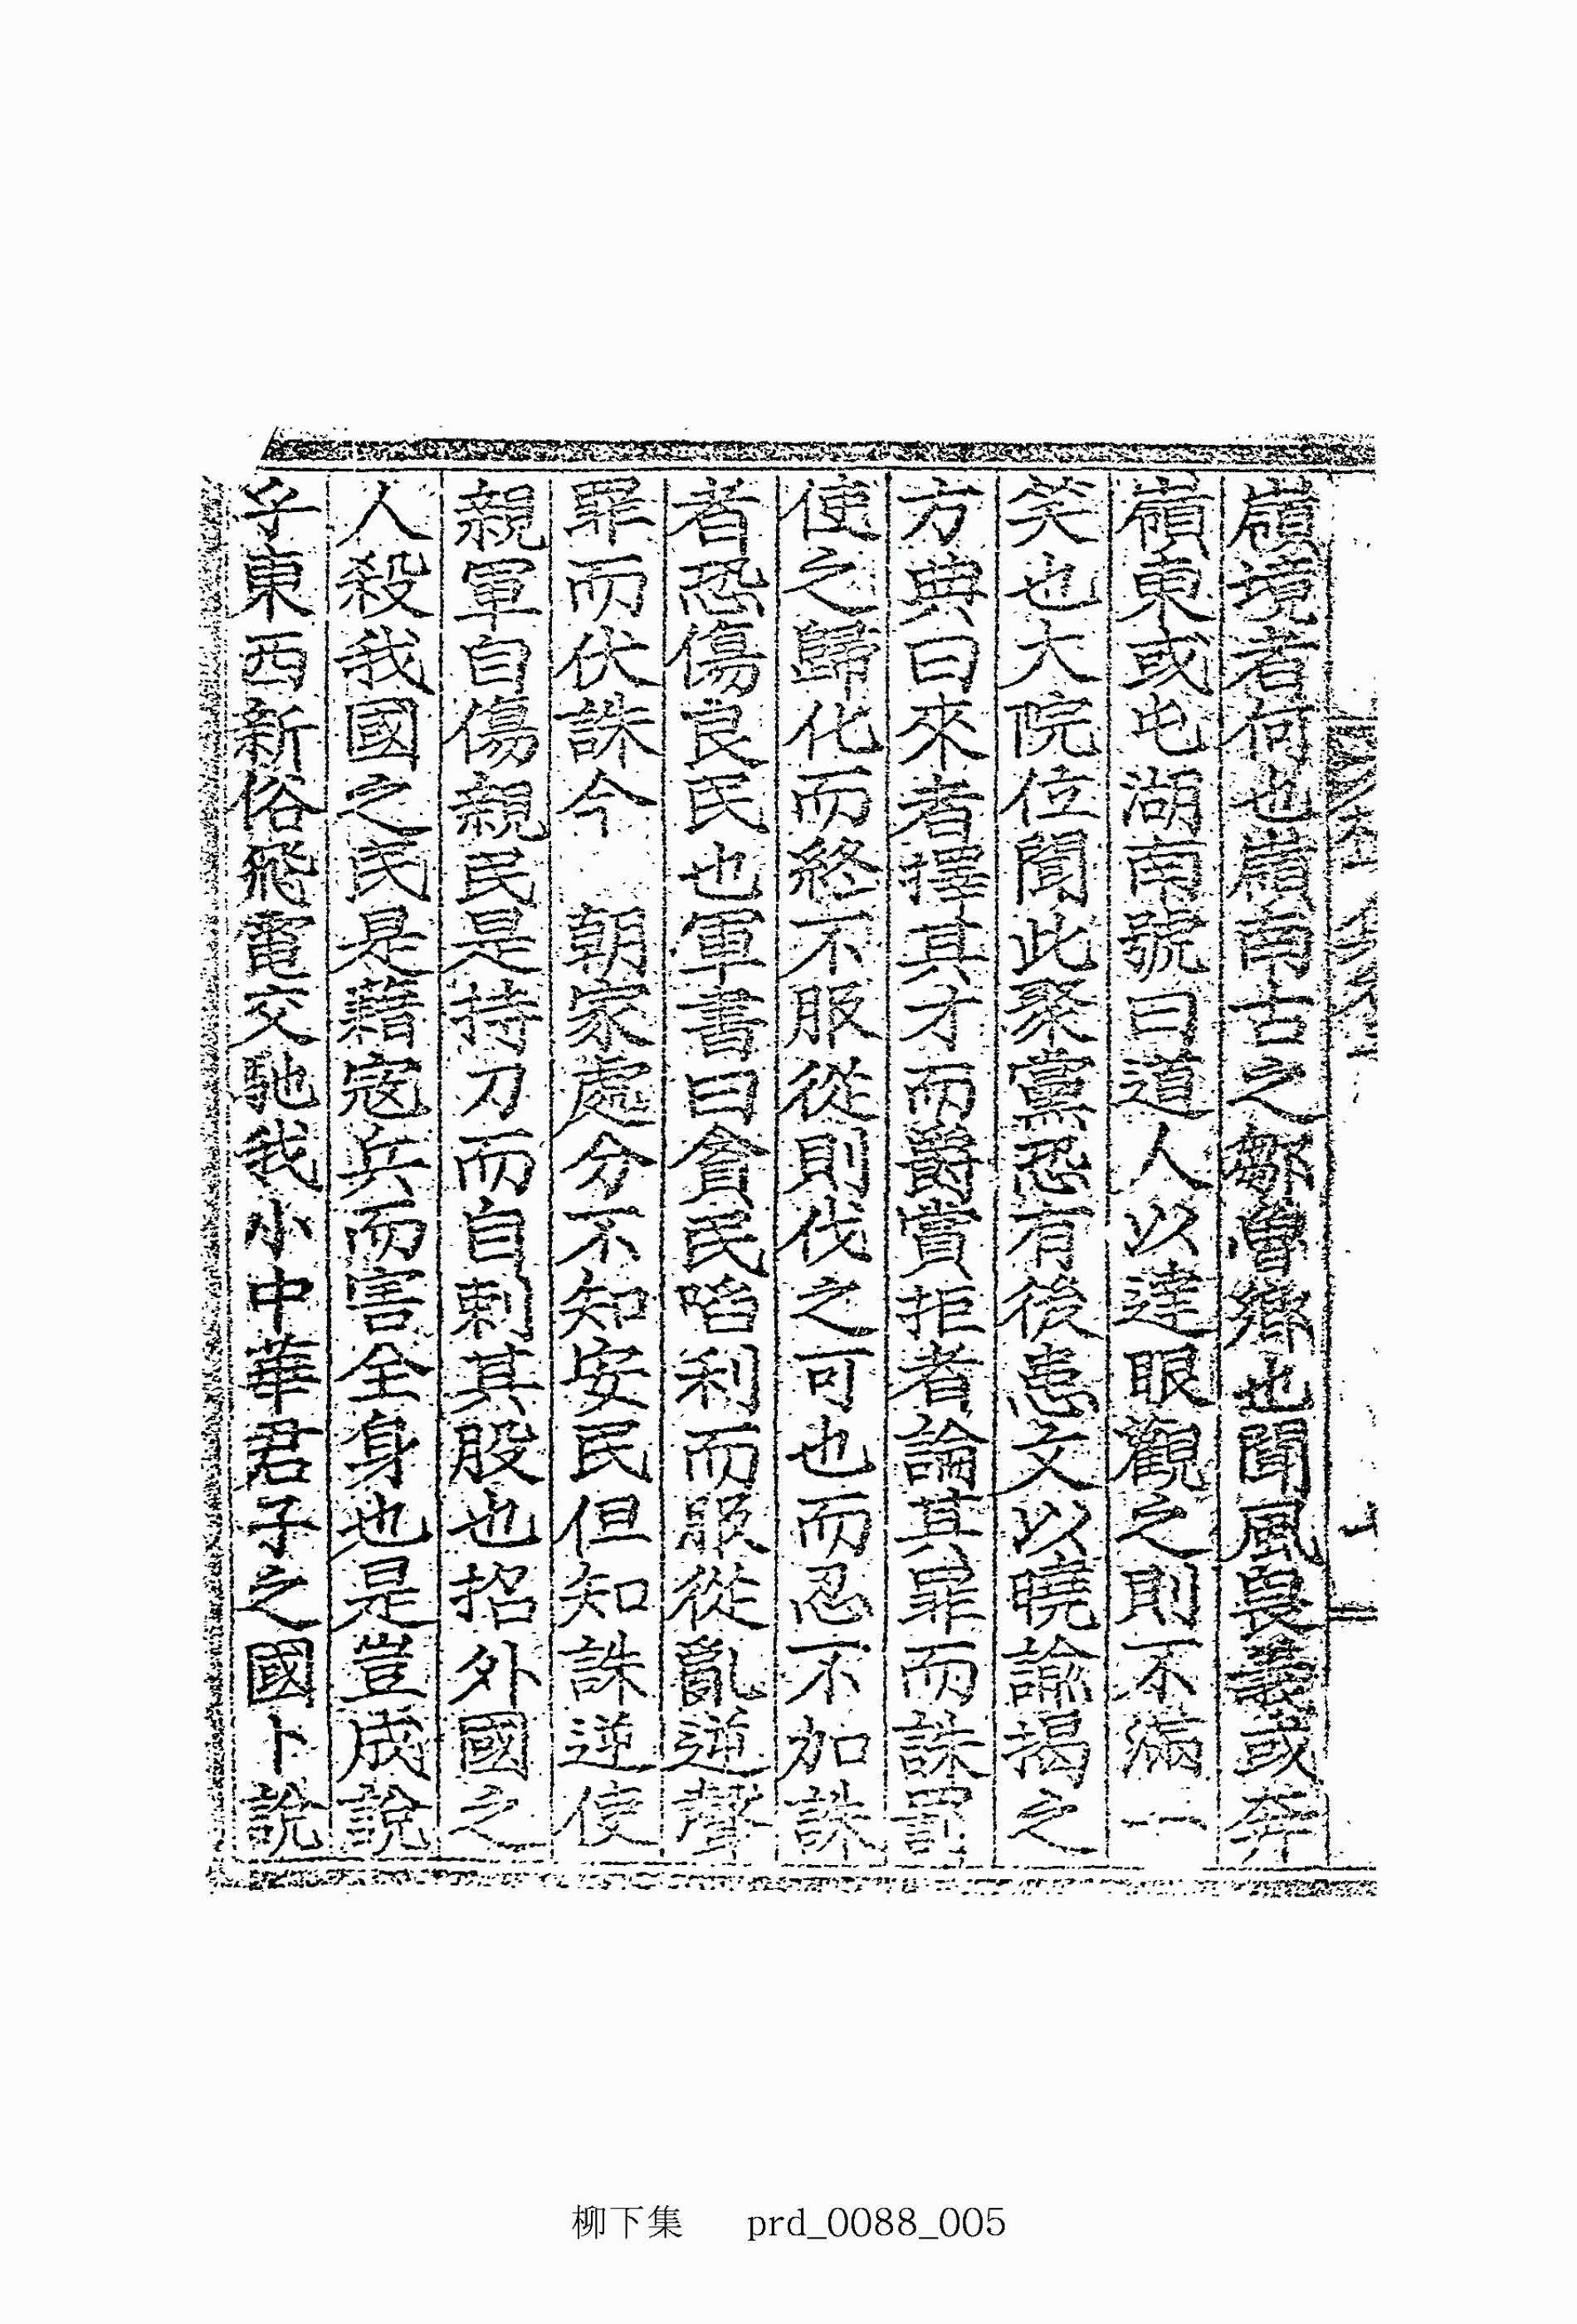 嶺境者何也嶺南古之鄒魯鄕也聞風畏義或奔
嶺東或屯湖南號曰道人以達眼觀之則不滿一
笑也大院位聞此聚黨恐有後患文以曉諭揭之
方典曰來者擇其才而爵賞拒者論其罪而誅罰
使之歸化而終不服從則伐之可也而忍不加誅
者恐傷良民也軍書曰貪民陷利而服從亂逆聲
罪而伏誅今 朝家處分不知安民但知誅逆使
親軍自傷親民是持刀而自刺其股也招外國之
人殺我國之民是藉寇兵而害全身也是豈成說
乎東西新俗飛電交馳我小中華君子之國卜說
柳下集 prd_0088_005